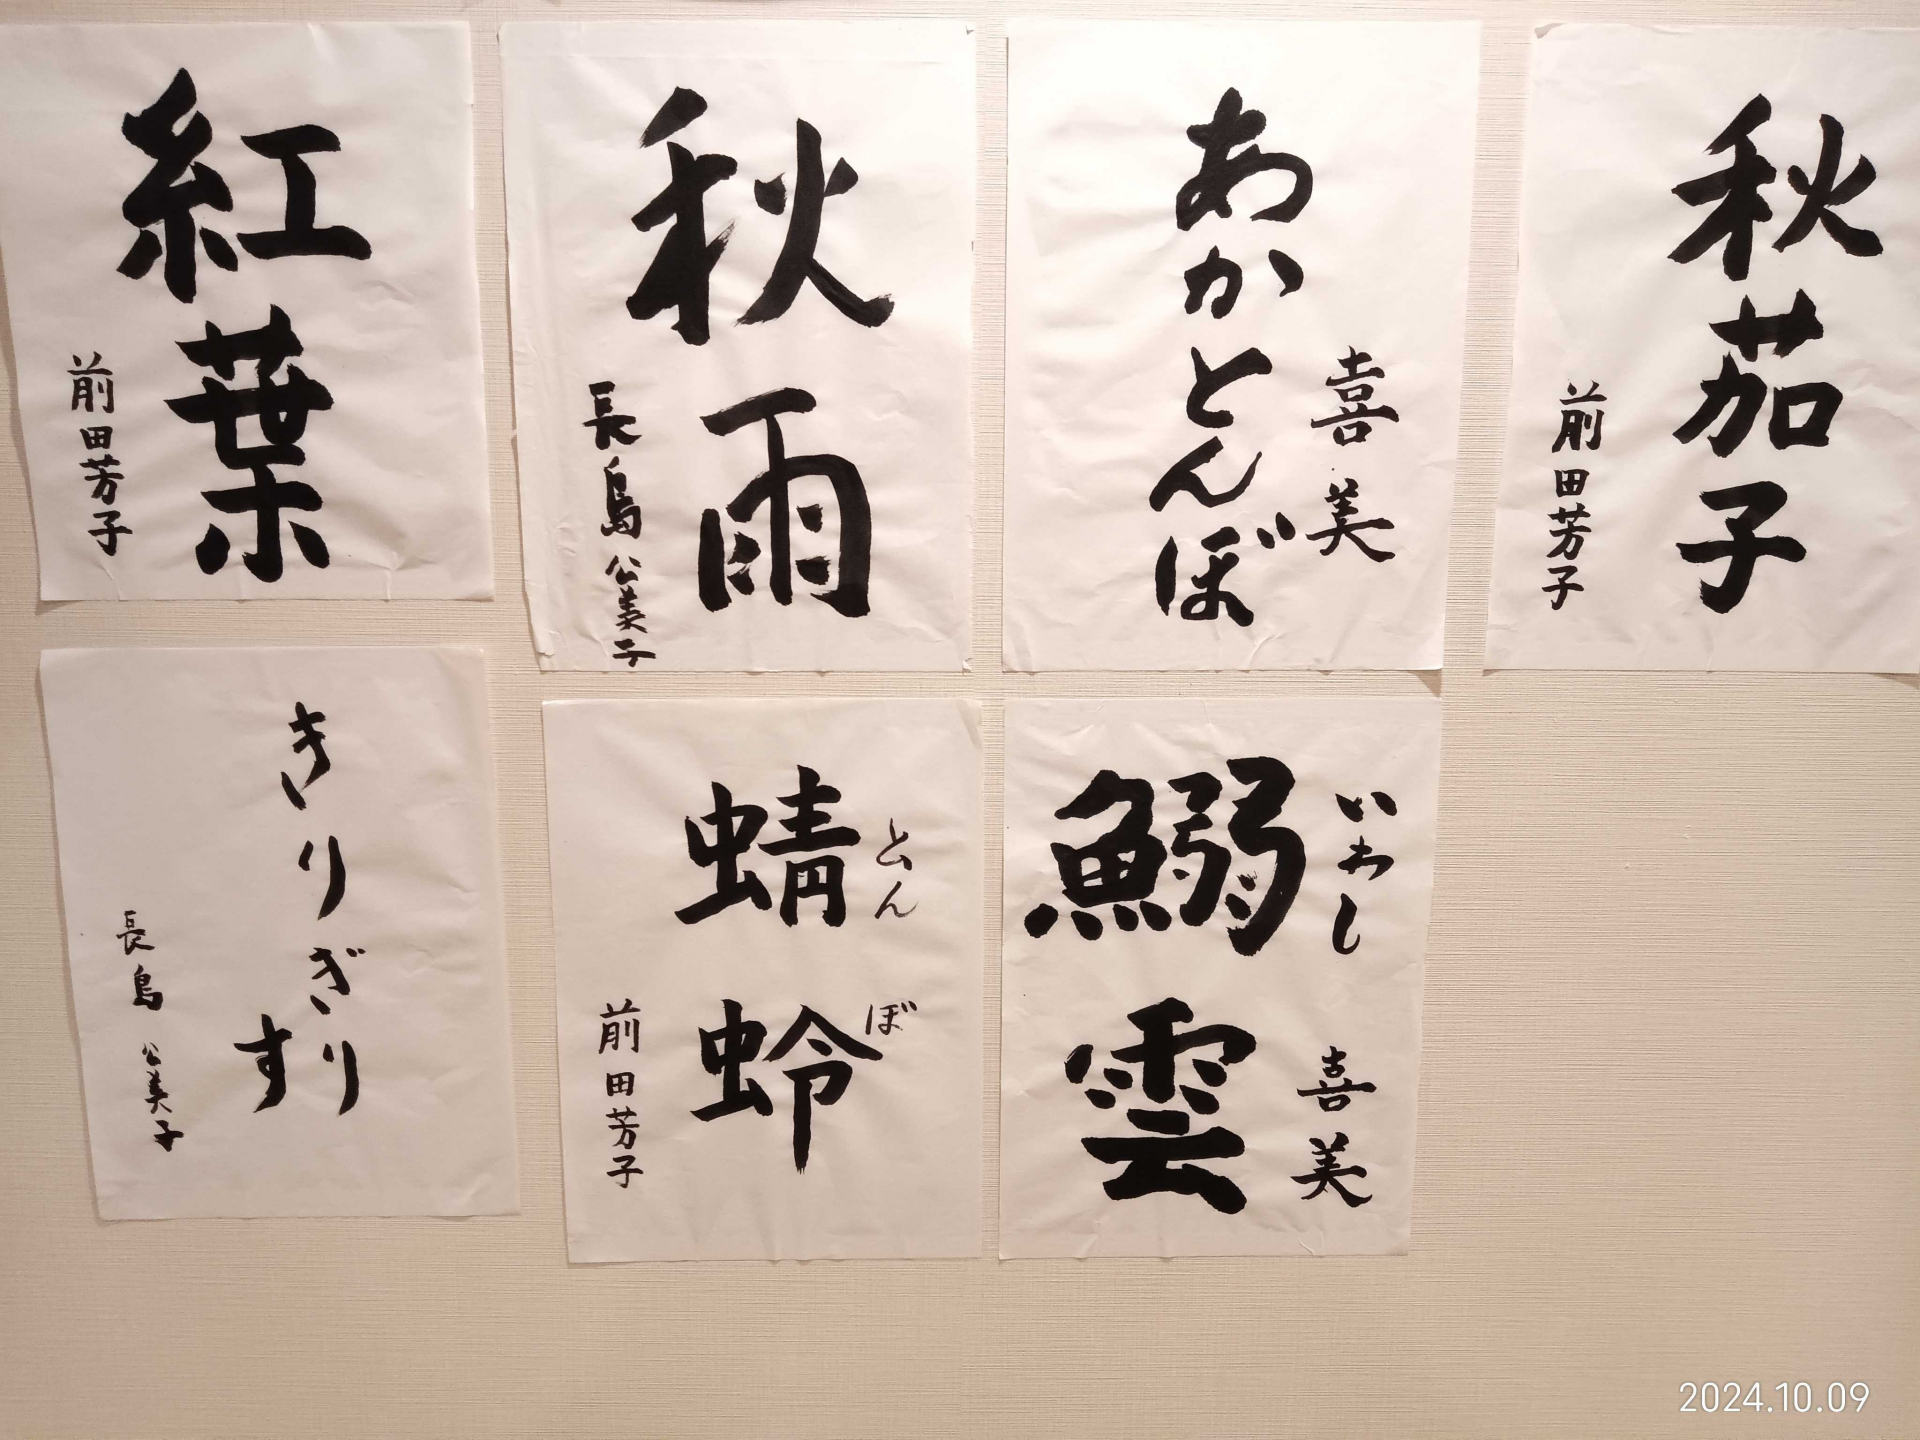 紅葉
前田芳子
秋雨
長島公美子
あかとんぼ
喜美
秋茄子
前田芳子
きりぎり
す
長島公美子
とんぼ
蜻蛉
前田芳子
いわし
鰯雲
喜美
2024.10.09